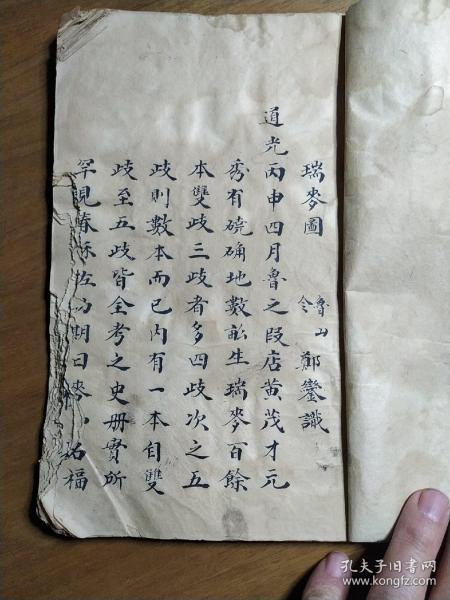 瑞麥圖 魯山令鄭鑾識
道光丙申四月魯之段店黄茂才元
秀有磽确地數畝生瑞麥百餘
本雙歧三歧者多四歧次之五
歧則數本而已内有一本自雙
歧至五歧皆全考之史册實所
罕見春秋佐助期曰麥福
孔夫子旧书网
www.kongfz.com